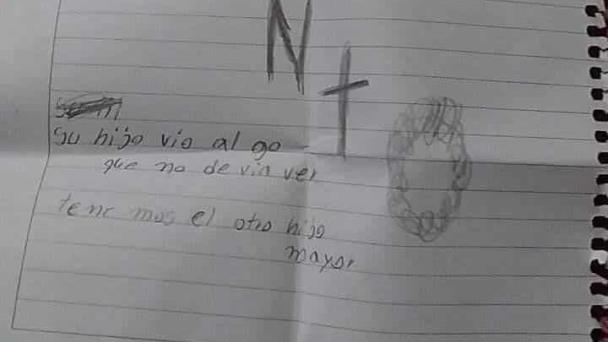 N t
su hijo vio al go
que no de via ver
tenemos el otro hijo
mayor